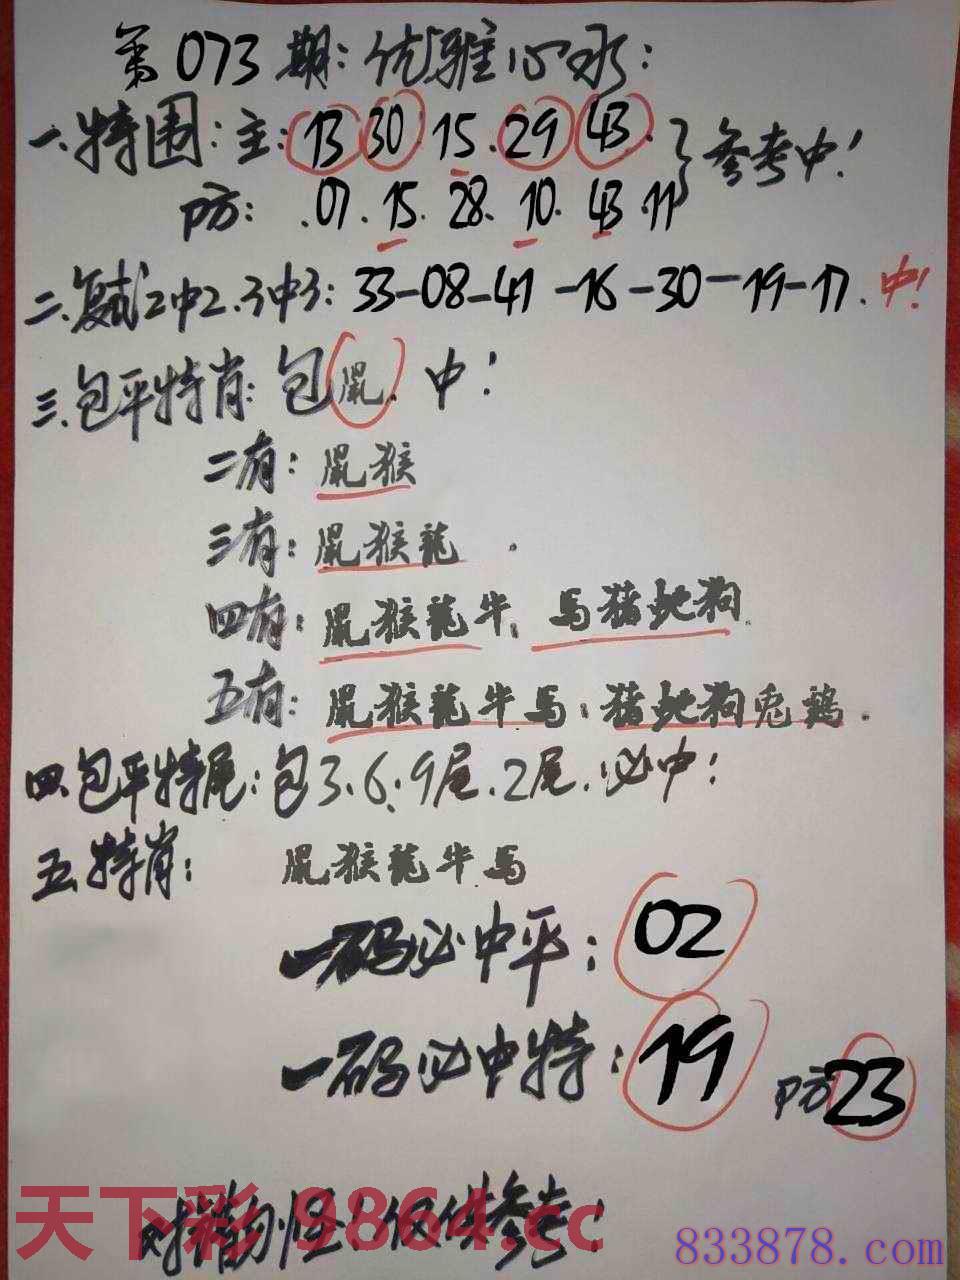 第073期:优雅心水:
一.特围:主:13 30·15·29 43·}参考中!
防:.07.15.28.10.43.11
二.复试2中2.3中3:33-08-41-16-30-19-17.中!
三.包平特肖:包鼠.中!
二有:鼠猴
三有:鼠猴龍.
四有:鼠猴龍牛,马猪蛇狗.
五有:鼠猴龍牛马:猪蛇狗兎鷄.
四.包平特尾:包3.6.9尾.2尾.必中!
五.特肖:鼠猴龍牛马
一码必中平:02
一码必中特:19 防23
料 怪!仅供参考!
天下彩 9864.cc
833878.com